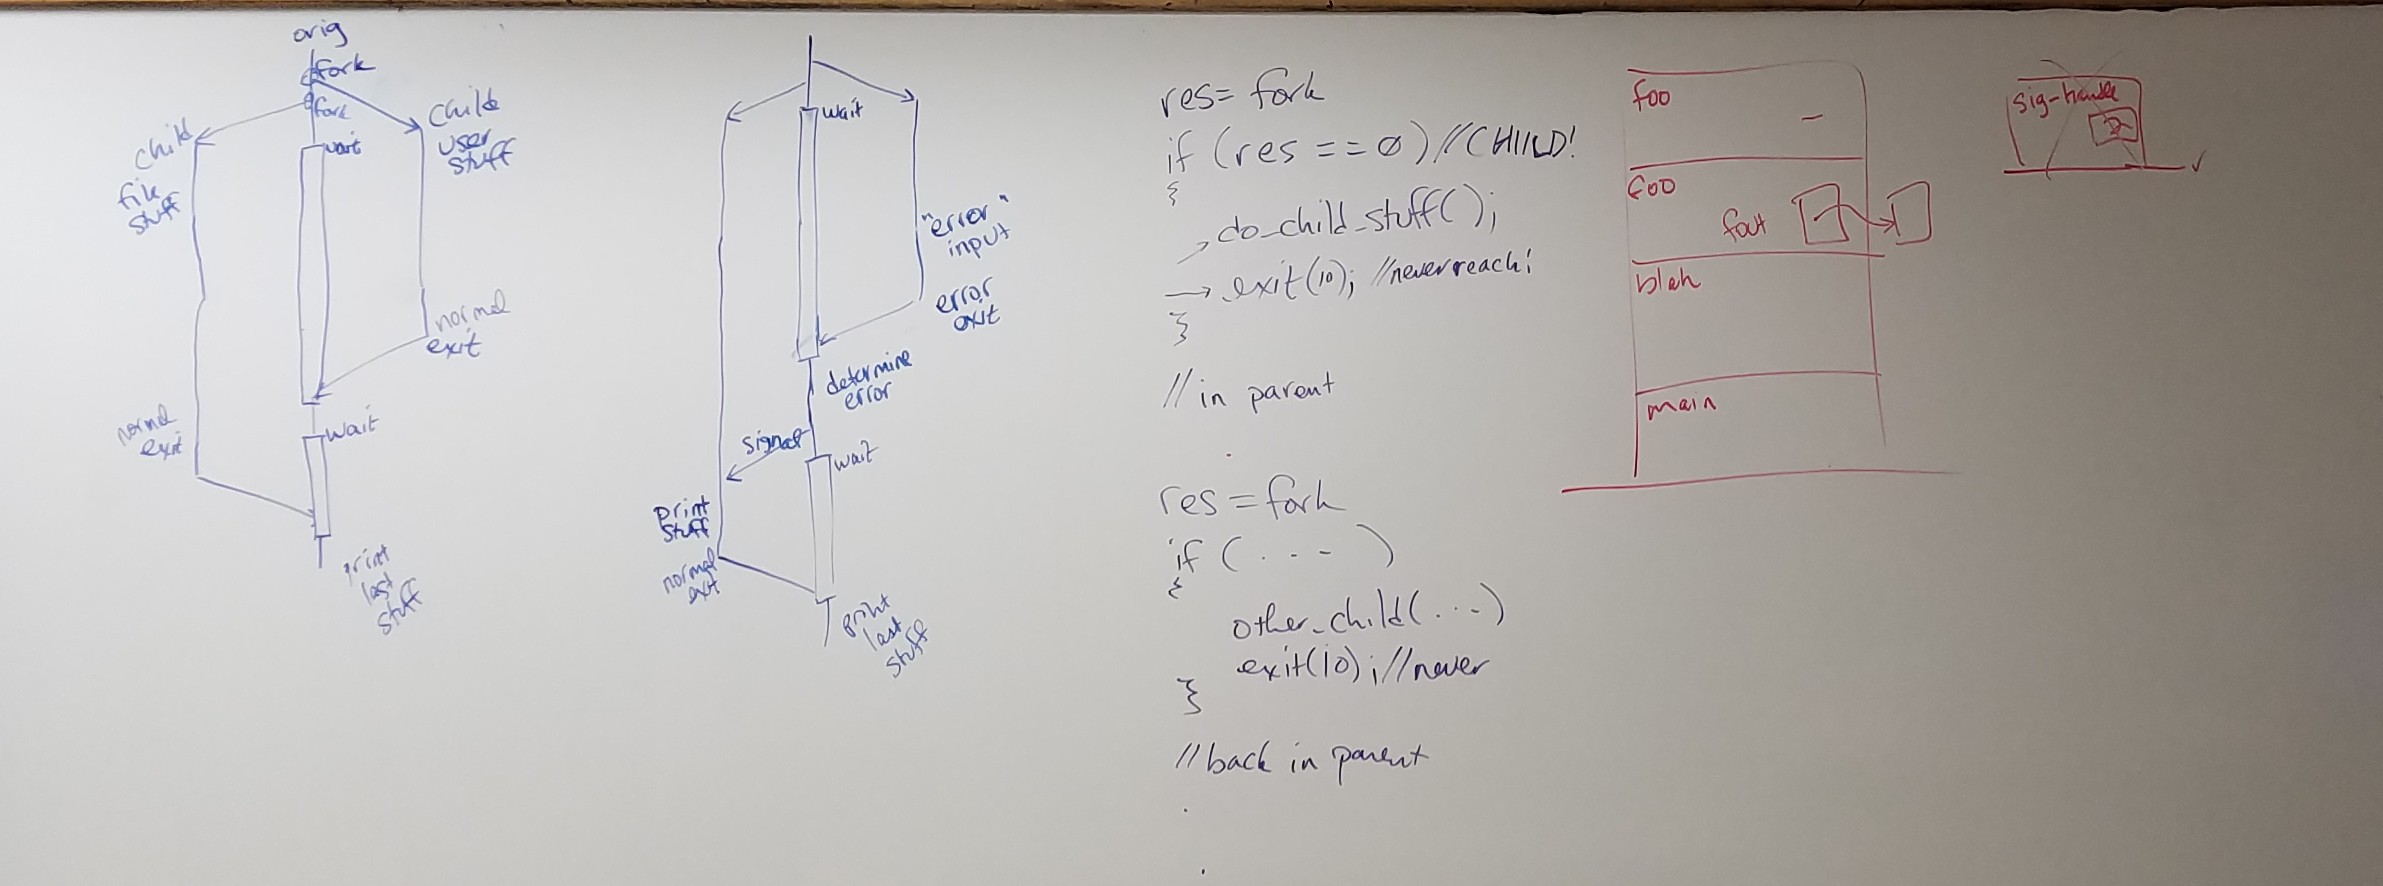 orig
fork
fork
child
file
stuff
child
user
stuff
wait
normal
exit
normal
exit
wait
print
last
stuff
wait
"error"
input
error
exit
determine
error
signal
wait
print
stuff
normal
exit
print
last
stuff
res= fork
if (res == 0) //CHIILD!
{
do_child_stuff();
→ exit(10); //never reach!
}
// in parent
.
res = fork
if (. - - )
{
other_child(. . -)
exit(10); //never
}
// back in parent
.
.
foo
foo
blah
main